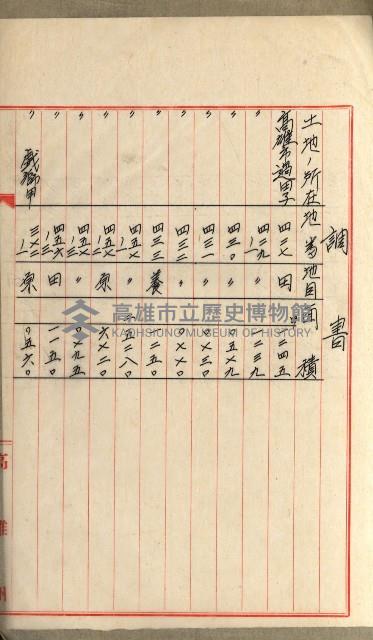 調書
土地ノ所在 地番 地目 面積
高雄市過田子 四二七 田 二四五
〃 四二九ノ一 〃 二三九
〃 四三〇 〃 〇五七九
〃 四三一 〃 〇七三〇
〃 四三二 〃 〇七七〇
〃 四三三 養 二五〇
〃 四五七ノ一 〃 一五二八〇
〃 四五七ノ二 原 六七二〇
〃 四五七ノ三 〃 〇七九五
〃 四五六ノ二 田 一一五〇
戲獅甲 三七二ノ一 原 〇五六〇
高雄州
高雄市立歷史博物館
KAOHSIUNG MUSEUM OF HISTORY